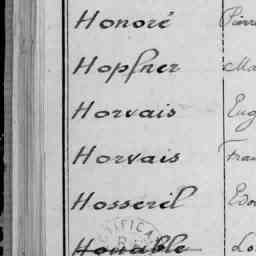 Honoré Pierre
Hopfner Ma
Horvais Eug
Horvais Fran
Hosseril Edo
Honable Lo